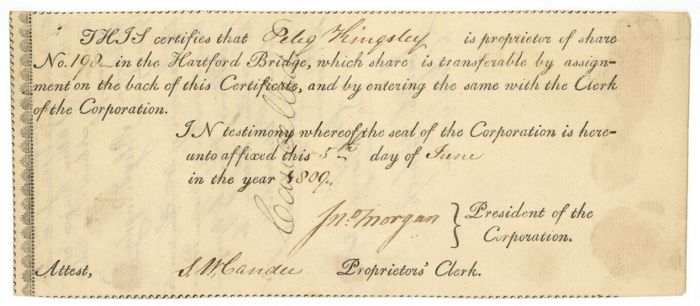 THIS certifies that Peleg Kingsley is proprietor of share
No. 198 in the Hartford Bridge, which share is transferable by assign-
ment on the back of this Certificate, and by entering the same with the Clerk
of the Corporation.
IN testimony whereof the seal of the Corporation is here-
unto affixed this 5th day of June
in the year 1809.
Jno Morgan } President of the
Corporation.
Attest, Proprietors' Clerk.
Cancelled